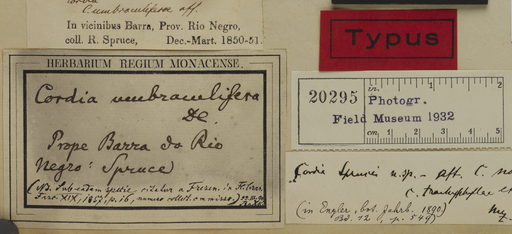 Cordia
C. umbraculifera aff.
In vicinibus Barra, Prov. Rio Negro,
coll. R. Spruce, Dec.-Mart. 1850-51.
Typus
HERBARIUM REGIUM MONACENSE.
Cordia umbraculifera
DC.
Prope Barra do Rio
Negro: Spruce)
(NB. Sub eadem specie citatur a Fresen. in Fl. bras.
Fasc. XIX, 1857, p. 16, numero collect. omisso.)
20295 Photogr.
Field Museum 1932
in. 1 2
cm. 1 2 3 4 5
Cordia Sprucei n. sp. – aff. C.
C. trachyphyllae et
(in Engler, bot. Jahrb. 1890)
Bd. 12, p. 549)